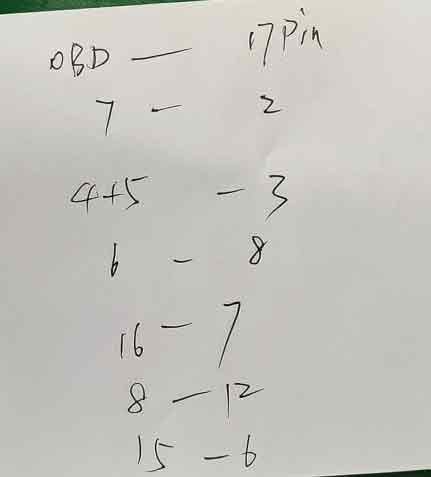 OBD — 17Pin
7 — 2
4+5 — 3
6 — 8
16 — 7
8 — 12
15 — 6